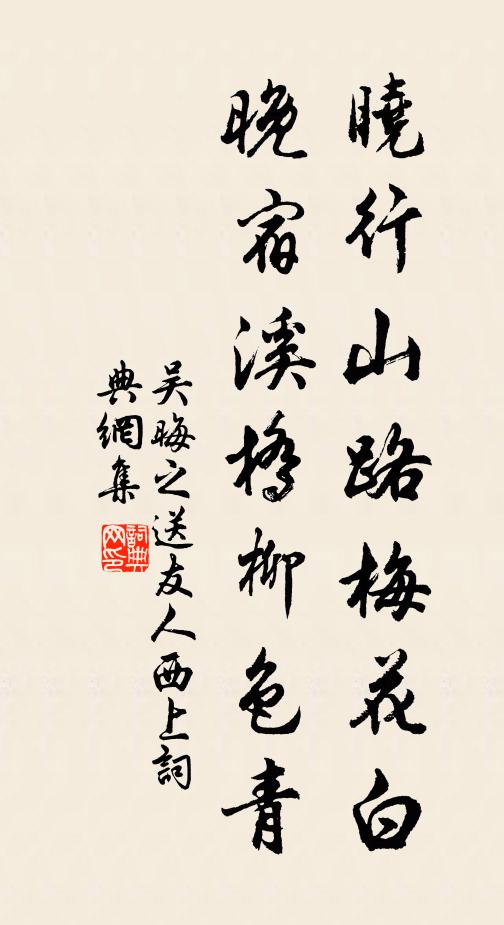 曉行山路梅花白
晚宿溪橋柳色青
吳晦之送友人西上詞
典網集
詞典
网印